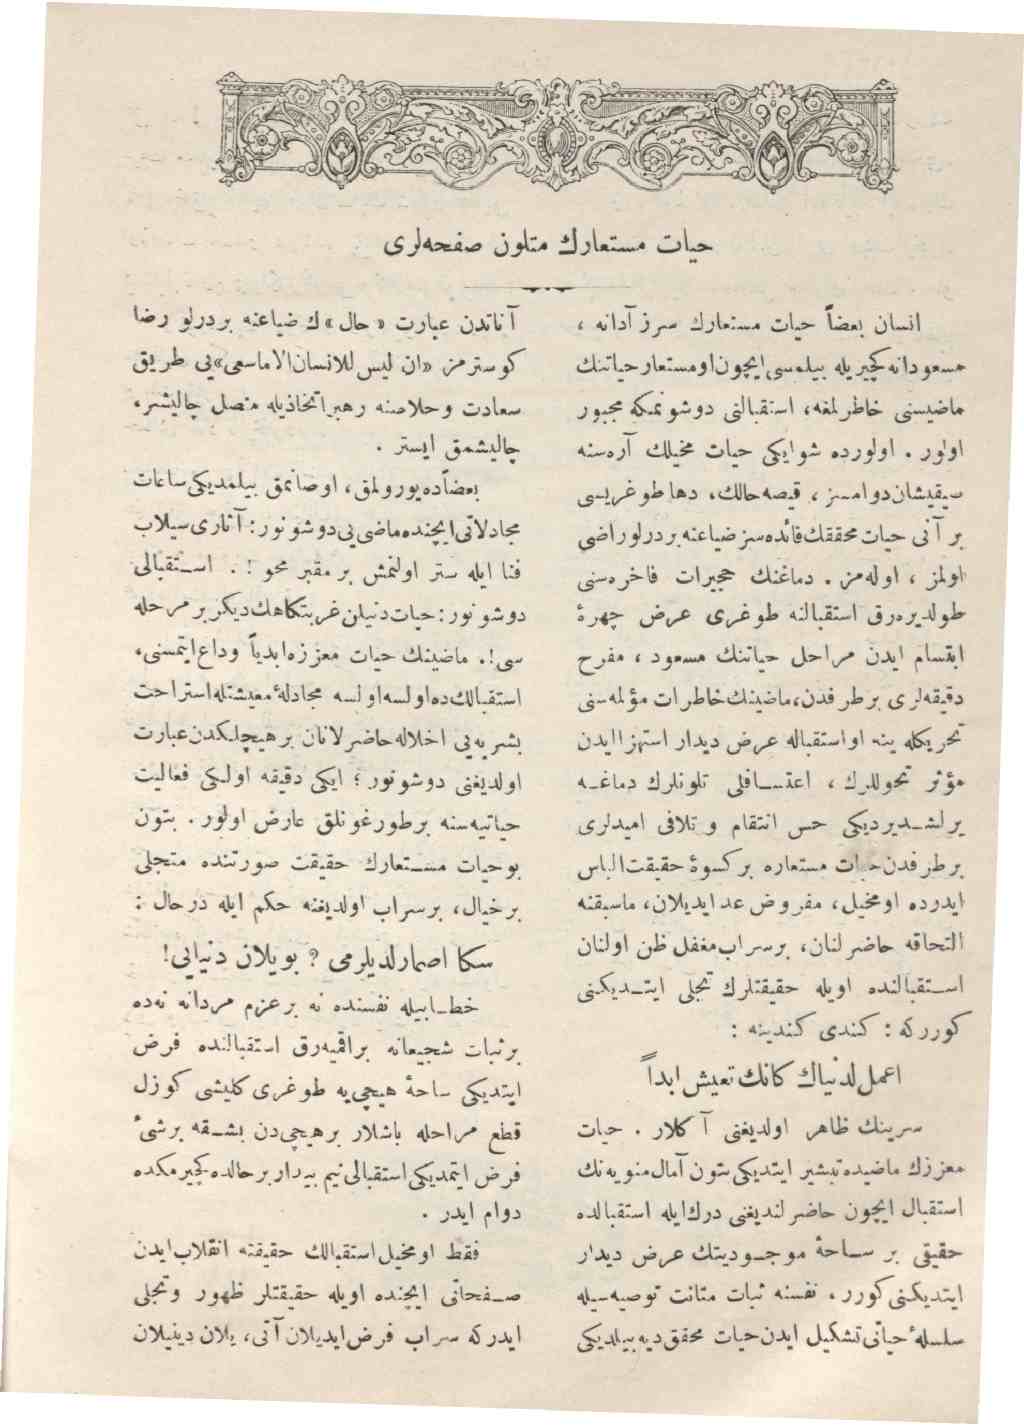 حیات مستعارك متلون صفحه‌لری
انسان بعضاً حیات مستعارك سرز آدانه ،
مسعودانه کچیریله بیلمسی ایچون اومستعار حیاتنك
ماضیسنی خاطرلمغه، استقبالنی دوشونمکه مجبور
اولور . اولورده شو ایکی حیات مخیلك آره‌سنه
سیقیشان دوامسز ، قیصه حالك، دها طوغریسی
بر آنی حیات محققك فائده‌سز ضیاعنه بر درلو راضی
اولمز ، اوله‌مز . دماغنك حجیرات فاخره‌سنی
طولدیره‌رق استقبالنه طوغری عرض چهرهٔ
ابتسام ایدن مراحل حیاتنك مسعود ، مفرح
دقیقه‌لری بر طرفدن، ماضینك خاطرات مؤلمه‌سنی
تحریکله ینه او استقباله عرض دیدار استهزا ایدن
مؤثر تحوللرك ، اعتسافلی تلونلرك دماغه
یرلشدیردیکی حس انتقام و تلافی امیدلری
بر طرفدن حیات مستعاره بر کسوهٔ حقیقت الباس
ایدرده اومخیل، مفروض عد ایدیلان، ماسبقنه
التحاقه حاضرلنان، برسراب مغفل ظن اولنان
استقبالنده اویله حقیقتلرك تجلی ایتدیکنی
کوررکه : کندی کندینه :
اعمل لدنیاك کانك تعیش ابداً
سرینك ظاهر اولدیغنی آکلار . حیات
معززك ماضیده تبشیر ایتدیکی بتون آمال منویه‌نك
استقبال ایچون حاضرلندیغنی درك ایله استقبالده
حقیقی بر ساحهٔ موجودیتك عرض دیدار
ایتدیکنی کورر، نفسنه ثبات متانت توصیه‌سیله
سلسلهٔ حیاتی تشکیل ایدن حیات محقق دیه بیلدیکی
آناتدن عبارت « حال »ك ضیاعنه بر درلو رضا
کوسترمز «ان لیس للانسان الا ماسعی»یی طریق
سعادت وخلاصنه رهبر اتخاذیله متصل چالیشیر،
چالیشمق ایستر .
بعضاًده یورولمق، اوصانمق بیلمدیکی ساعات
مجادلاتی ایچنده ماضی‌یی دوشونور: آثاری سیلاب
فنا ایله ستر اولنمش بر مقبر محو ! . استقبالی
دوشونور: حیات دنیلن غربتکاهك دیکر بر مرحله
سی!. ماضینك حیات معززه ابدیاً وداع ایتمسنی،
استقبالك ده اولسه اولسه مجادلهٔ معیشتله استراحت
بشریه‌یی اخلاله حاضرلانان بر هیچلکدن عبارت
اولدیغنی دوشونور ؛ ایکی دقیقه اولکی فعالیت
حیاتیه‌سنه بر طورغونلق عارض اولور . بتون
بوحیات مستعارك حقیقت صورتنده متجلی
برخیال، برسراب اولدیغنه حکم ایله درحال :
سکا اصمارلدیلرمی ? بو یلان دنیایی!
خطابیله نفسنده نه بر عزم مردانه نه‌ده
بر ثبات شجیعانه براقمیه‌رق استقبالنده فرض
ایتدیکی ساحهٔ هیچی‌یه طوغری کلیشی کوزل
قطع مراحله باشلار بر هیچی‌دن بشقه بر شیٔ
فرض ایتمدیکی استقبالی نیم بیدار بر حالده کچیرمکده
دوام ایدر .
فقط اومخیل استقبالك حقیقته انقلاب ایدن
صفحاتی ایچنده اویله حقیقتلر ظهور و تجلی
ایدرکه سراب فرض ایدیلان آتی، یلان دینیلان